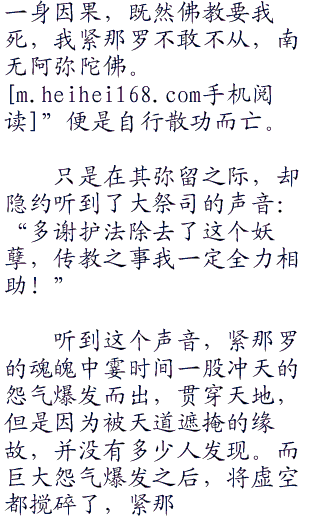 一身因果，既然佛教要我
死，我紧那罗不敢不从，南
无阿弥陀佛。
[m.heihei168.com手机阅
读]”便是自行散功而亡。
只是在其弥留之际，却
隐约听到了大祭司的声音：
“多谢护法除去了这个妖
孽，传教之事我一定全力相
助！”
听到这个声音，紧那罗
的魂魄中霎时间一股冲天的
怨气爆发而出，贯穿天地，
但是因为被天道遮掩的缘
故，并没有多少人发现。而
巨大怨气爆发之后，将虚空
都搅碎了，紧那